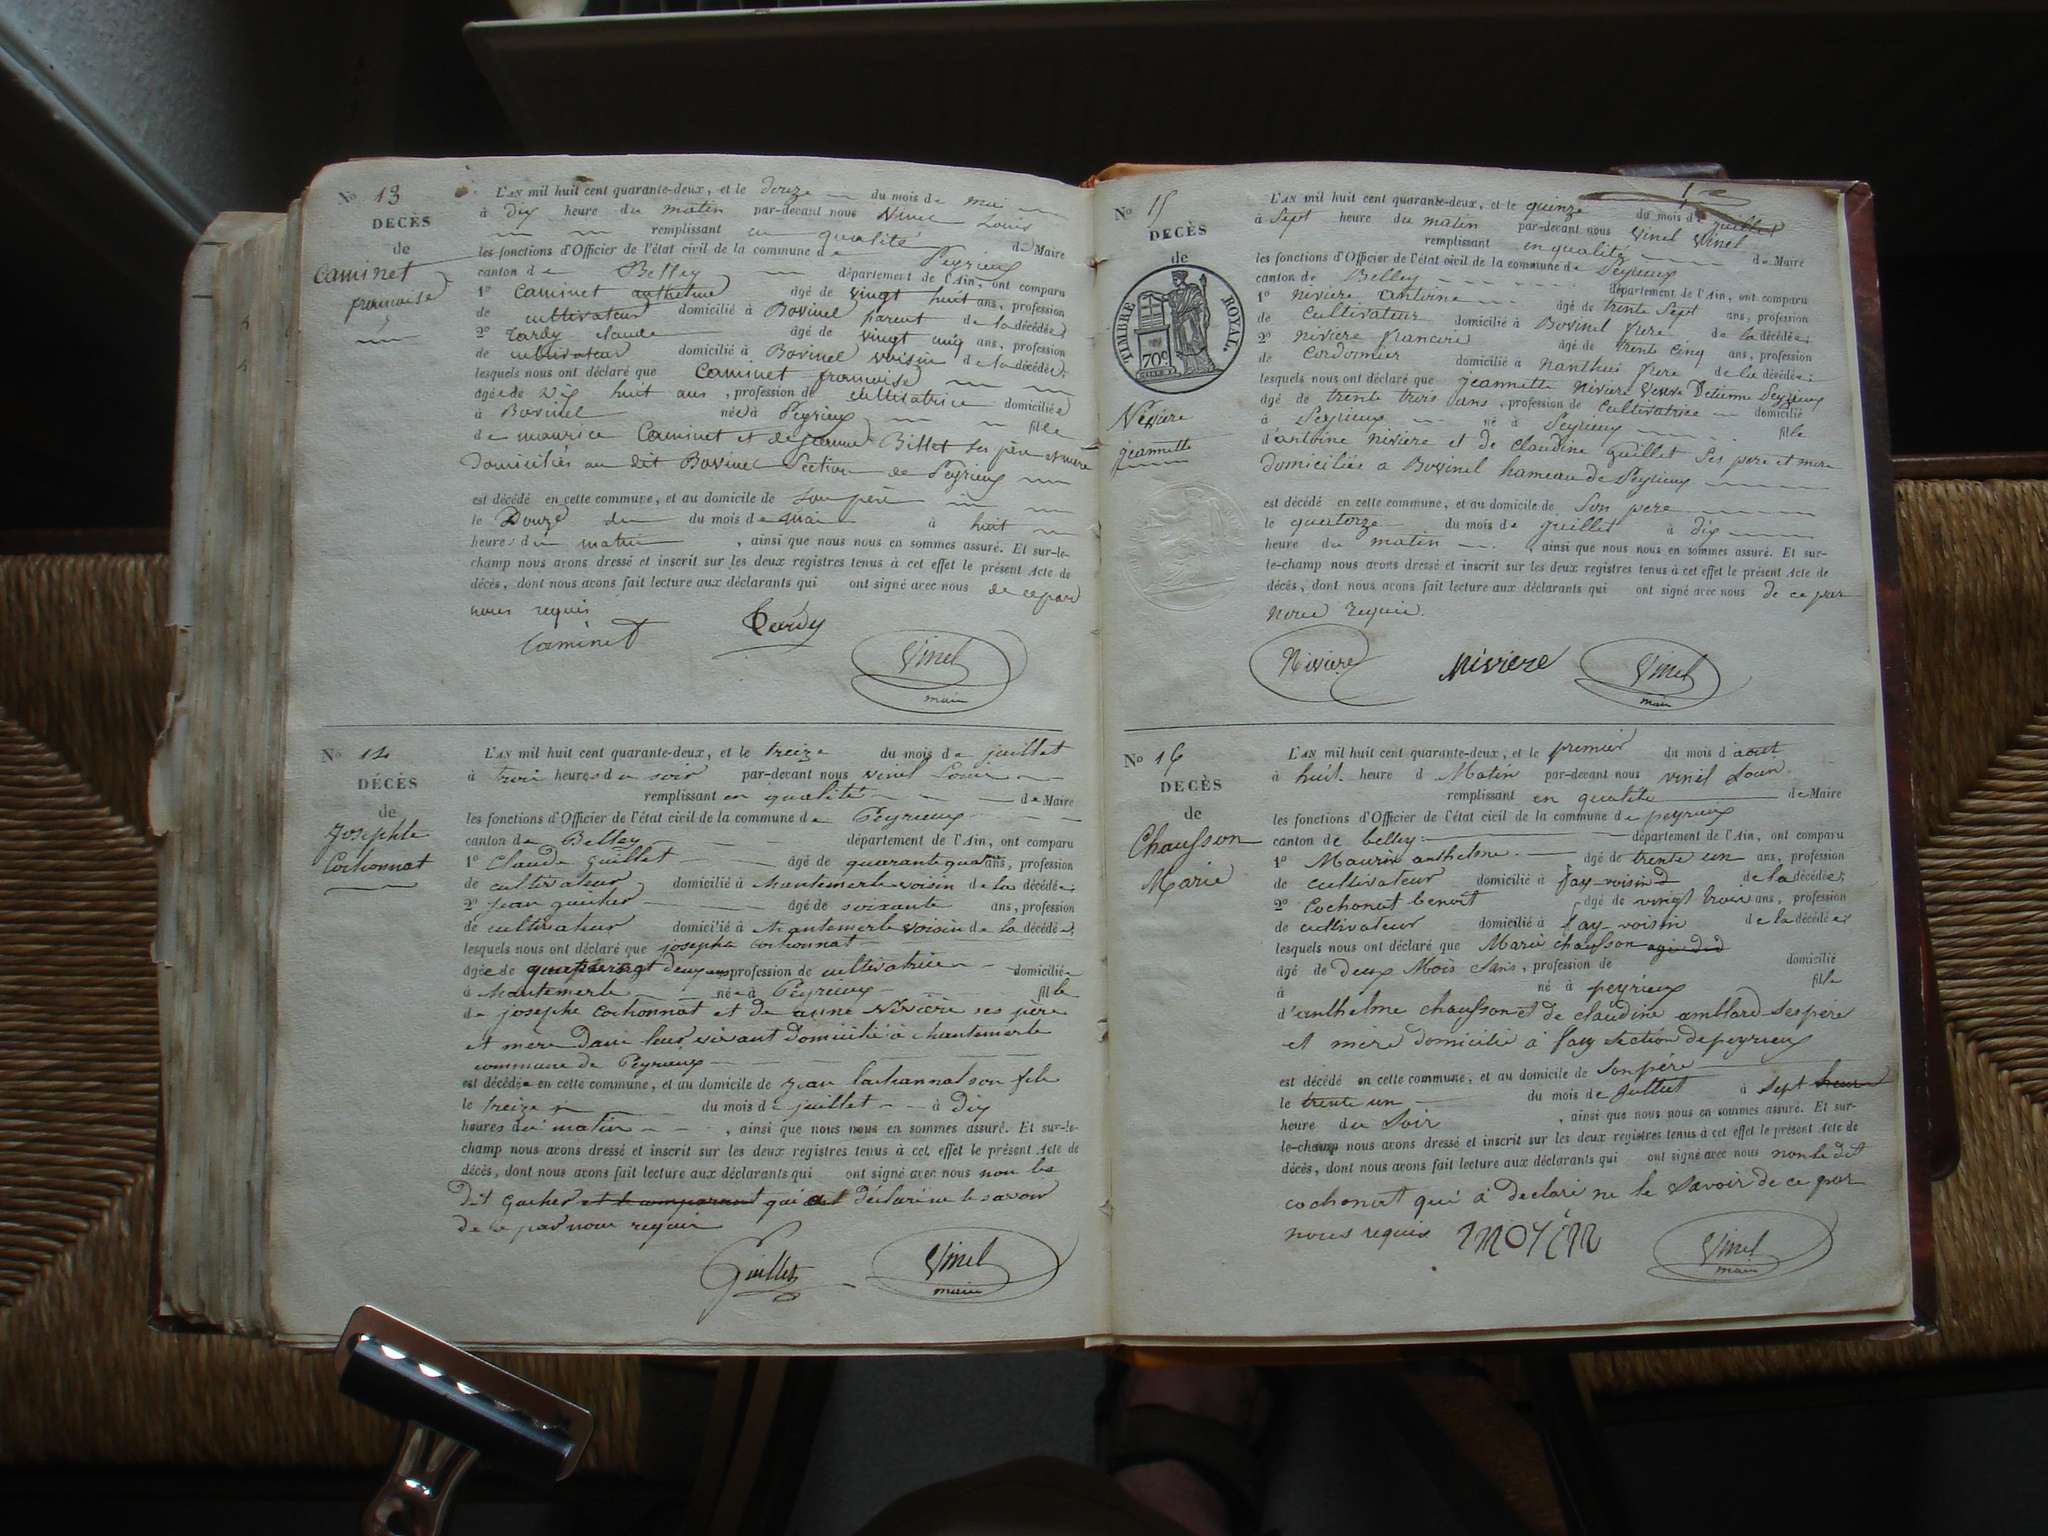 N° 13
DECÈS
de
Caminet
françoise
L'AN mil huit cent quarante-deux, et le douze du mois de mai
à dix heure du matin par-devant nous Vinel Louis
remplissant en qualité de Maire
les fonctions d'Officier de l'état civil de la commune de Peyrieux
canton de Belley département de l'Ain, ont comparu
1° Caminet anthelme âgé de vingt huit ans, profession
de cultivateur domicilié à Bovinel parent de la décédée
2° Tardy claude âgé de vingt cinq ans, profession
de cultivateur domicilié à Bovinel voisin de la décédée,
lesquels nous ont déclaré que Caminet françoise
agée de dix huit ans, profession de cultivatrice domiciliée
à Bovinel née à Peyrieux fille
de maurice Caminet et de jeanne Billet ses père et mère
Domiciliés au dit Bovinel Section de Peyrieux
est décédé en cette commune, et au domicile de son père
le Douze du du mois de mai à huit
heures du matin, ainsi que nous nous en sommes assuré. Et sur-le-
champ nous avons dressé et inscrit sur les deux registres tenus à cet effet le présent Acte de
décès, dont nous avons fait lecture aux déclarants qui ont signé avec nous de ce par
nous requis
Caminet Tardy Vinel
maire
N° 14
DÉCÈS
de
Josephte
Cochonnat
L'AN mil huit cent quarante-deux, et le treize du mois de juillet
à trois heures du soir par-devant nous vinel Louis
remplissant en qualité de Maire
les fonctions d'Officier de l'état civil de la commune de Peyrieux
canton de Belley département de l'Ain, ont comparu
1° Claude Guillet âgé de quarante quatre ans, profession
de cultivateur domicilié à Chantemerle voisin de la décédée
2° Jean gauher âgé de soixante ans, profession
de cultivateur domicilié à Chantemerle voisin de la décédée,
lesquels nous ont déclaré que josephte cochonnat
agée de quatrevingt deux ans profession de cultivatrice domiciliée
à Chantemerle née à Peyrieux fille
de josephe cochonnat et de anne Nivière ses père
et mère dans leur vivant domicilié à chantemerle
commune de Peyrieux
est décédée en cette commune, et au domicile de jean cochonnat son fils
le treize du mois de juillet à dix
heures du matin, ainsi que nous nous en sommes assuré. Et sur-le-
champ nous avons dressé et inscrit sur les deux registres tenus à cet effet le présent Acte de
décès, dont nous avons fait lecture aux déclarants qui ont signé avec nous non le
dit gauher et le comparant qui a déclaré ne le savoir
de ce par nous requis
Guillet Vinel
maire
N° 15
DECÈS
de
TIMBRE ROYAL.
70c
Nivière
jeannette
L'AN mil huit cent quarante-deux, et le quinze du mois de juillet
à sept heure du matin par-devant nous Vinel Vinel
remplissant en qualité de Maire
les fonctions d'Officier de l'état civil de la commune de Peyrieux
canton de Belley département de l'Ain, ont comparu
1° nivière antoine âgé de trente sept ans, profession
de cultivateur domicilié à Bovinel frère de la décédée
2° nivière francois âgé de trente cinq ans, profession
de Cordonnier domicilié à nanthui frère de la décédée
lesquels nous ont déclaré que jeannette Nivière veuve Detienne Peyrieux
agé de trente trois ans, profession de cultivatrice domicilié
à Peyrieux né à Peyrieux fille
d'antoine nivière et de claudine guillet ses pere et mere
domiciliés a Bovinel hameau de Peyrieux
est décédé en cette commune, et au domicile de son pere
le quatorze du mois de juillet à dix
heure du matin, ainsi que nous nous en sommes assuré. Et sur-
le-champ nous avons dressé et inscrit sur les deux registres tenus à cet effet le présent Acte de
décès, dont nous avons fait lecture aux déclarants qui ont signé avec nous de ce par
nous requis.
Nivière Nivière Vinel
maire
N° 16
DECÈS
de
Chausson
Marie
L'AN mil huit cent quarante-deux, et le premier du mois d'août
à huit heure d Matin par-devant nous vinel Louis
remplissant en qualité de Maire
les fonctions d'Officier de l'état civil de la commune de peyrieux
canton de belley département de l'Ain, ont comparu
1° Maurin anthelme âgé de trente un ans, profession
de cultivateur domicilié à fay voisin d de la décédée,
2° Cochonat benoit âgé de vingt trois ans, profession
de cultivateur domicilié à fay voisin de la décédée
lesquels nous ont déclaré que Marie chausson
âgé de deux Mois sans, profession de domicilié
à né à peyrieux fille
d'anthelme chausson et de claudine amblard ses père
et mère domicilié à fay section de peyrieux
est décédé en cette commune, et au domicile de son père
le trente un du mois de juillet à sept heure
heure du soir, ainsi que nous nous en sommes assuré. Et sur-
le-champ nous avons dressé et inscrit sur les deux registres tenus à cet effet le présent Acte de
décès, dont nous avons fait lecture aux déclarants qui ont signé avec nous non le dit
cochonat qui à declaré ne le savoir de ce par
nous requis Vinel
maire